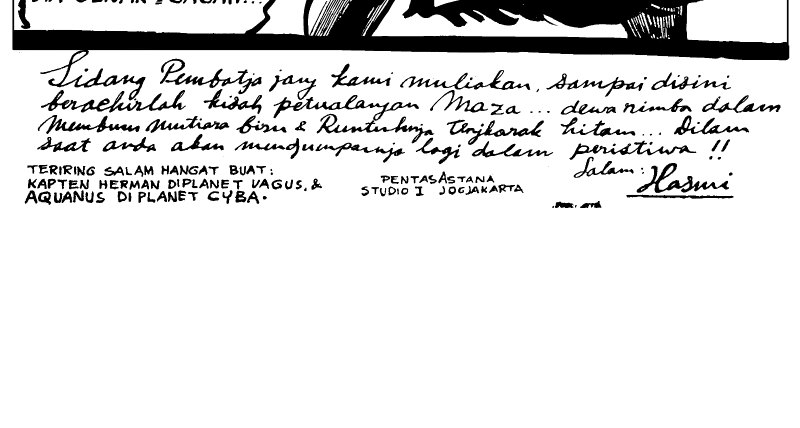 Sidang Pembatja jang kami muliakan, sampai disini
berachirlah kisah petualangan Maza... dewa rimba dalam
Memburu Mutiara biru & Runtuhnja Tengkorak hitam... Dilain
saat anda akan mendjumpainja lagi dalam peristiwa !!
TERIRING SALAM HANGAT BUAT:
KAPTEN HERMAN DIPLANET VAGUS, &
AQUANUS DI PLANET CYBA.
PENTASASTANA
STUDIO I JOGJAKARTA
Salam:
Hasmi